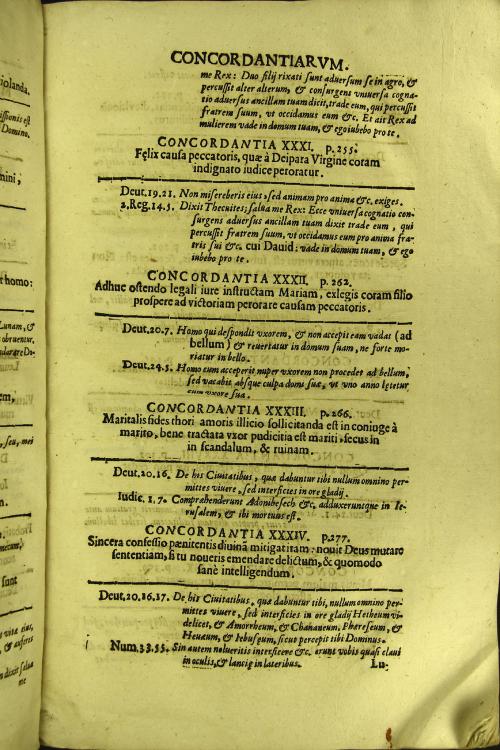 CONCORDANTIARVM.
me Rex: Duo filij rixati sunt adversum se in agro, &
percussit alter alterum, & consurgens vniuersa cogna-
tio adversus ancillam tuam dicit, trade eum, qui percussit
fratrem suum, vt occidamus eum &c. Et ait Rex ad
mulierem vade in domum tuam, & ego iubebo pro te.
CONCORDANTIA XXXI. p.255.
Felix causa peccatoris, quæ à Deipara Virgine coram
indignato iudice peroratur.
Deut.19.21. Non misereberis eius, sed animam pro anima &c. exiges.
2.Reg.14.5. Dixit Thecuites; salua me Rex: Ecce vniuersa cognatio con-
surgens aduersus ancillam tuam dixit trade eum, qui
percussit fratrem suum, vt occidamus eum pro anima fra-
tris sui &c. cui Dauid: vade in domum tuam, & ego
iubebo pro te.
CONCORDANTIA XXXII. p.262.
Adhuc ostendo legali iure instructam Mariam, exlegis coram filio
prospere ad victoriam perorare causam peccatoris.
Deut.20.7. Homo qui despondit vxorem, & non accepit eam vadat (ad
bellum) & reuertatur in domum suam, ne forte mo-
riatur in bello.
Deut.24.5. Homo cum acceperit nuper vxorem non procedet ad bellum,
sed vacabit absque culpa domi suæ, vt vno anno lętetur
cum vxore sua.
CONCORDANTIA XXXIII. p.266.
Maritalis fides thori amoris illicio sollicitanda est in coniuge à
marito, bene tractata vxor pudicitia est mariti, secus in
in scandalum, & ruinam.
Deut.20.16. De his Ciuitatibus, quæ dabuntur tibi nullum omnino per-
mittes viuere, sed interficies in ore gladij.
Iudic.1.7. Compræhenderunt Adonibesech &c. adduxeruntque in Ie-
rusalem, & ibi mortuus est.
CONCORDANTIA XXXIV. p.277.
Sincera confessio pænitentis diuinã mitigat iram: nouit Deus mutare
sententiam, si tu noueris emendare delictum, & quomodo
sanè intelligendum.
Deut.20.16.17. De his Ciuitatibus, quæ dabuntur tibi, nullum omnino per-
mittes viuere, sed interficies in ore gladij Hetheum vi-
delicet, & Amorrheum, & Chananeum, Phereseum, &
Heuæum, & Iebuseum, sicut percepit tibi Dominus.
Num.33.55. Sin autem nolueritis interficere &c. erunt vobis quasi claui
in oculis, & lancię in lateribus.
Lu-
iolanda.
Domino.
t homo:
Lunam, &
sunt
me